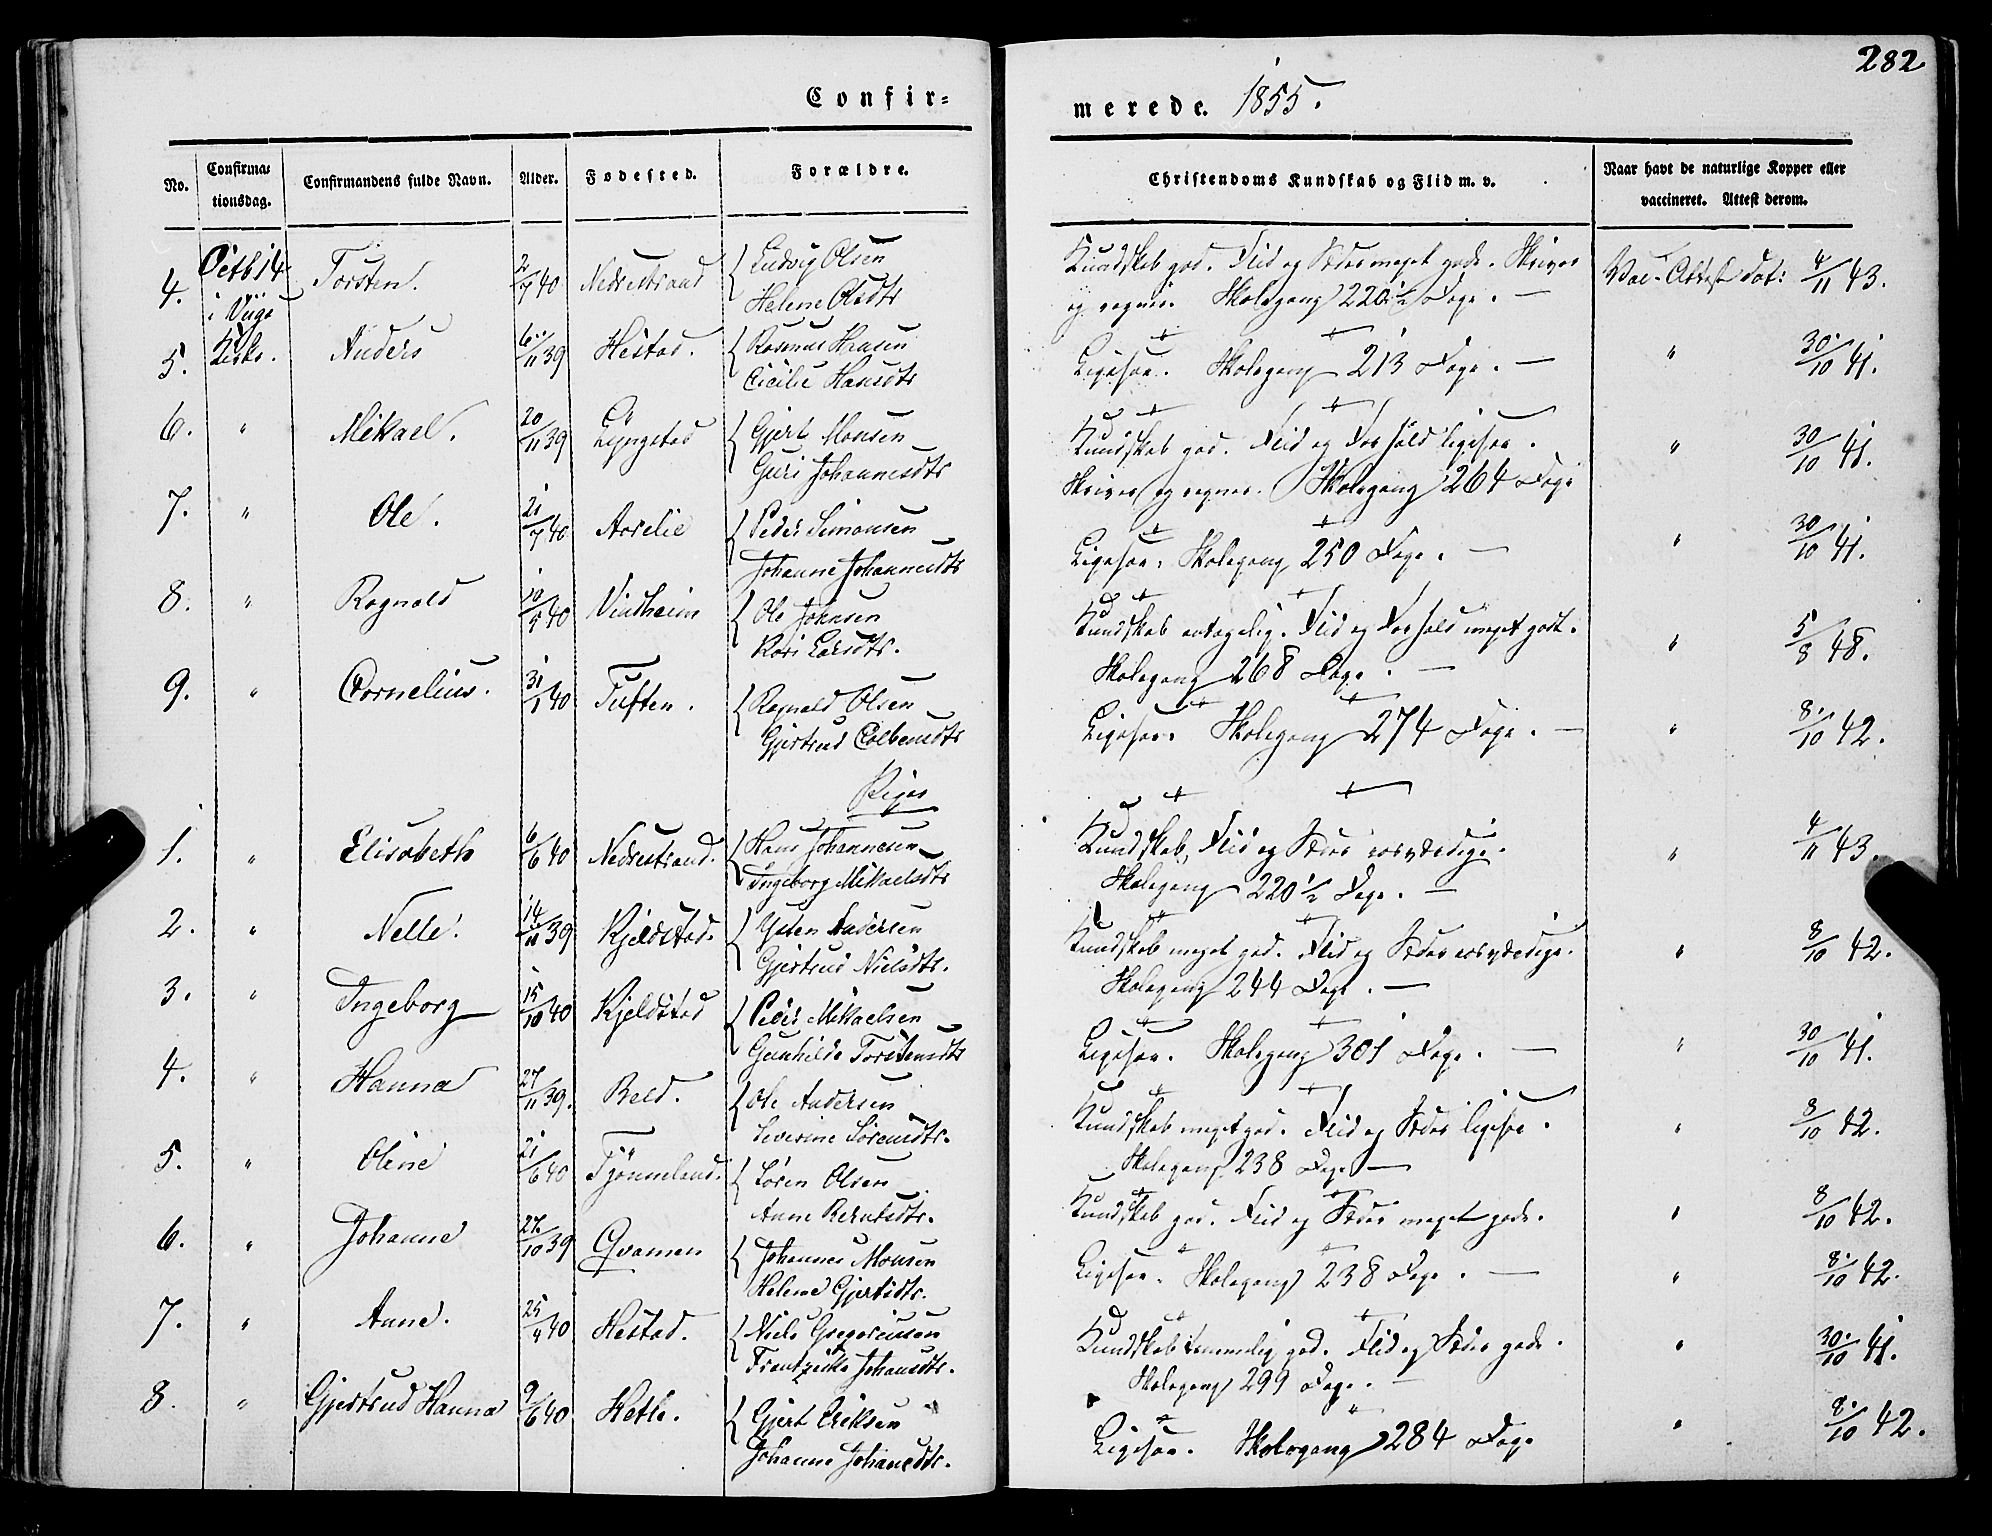 282
Confir=
merede. 1855.
No. Confirma= tionsdag. Confirmandens fulde Navn. Alder. Fødested. Forældre. Christendoms Kundskab og Flid m. v. Naar havt de naturlige Kopper eller vaccineret. Attest derom.
4. Octb 14 Torsten. 2/7 40 Nedrestrand { Ludvig Olsen Kundskab god. Flid og Sæder meget gode. Skriver Vac. Attest dat: 4/11 43.
i Helene Olsdtr og regner. Skolegang 220 1/2 Dage. —
5. Kirke. Anders 6/11 39 Hestad. { Rasmus Hansen Ligesaa. Skolegang 213 Dage. — " 30/10 41.
Cicilie Hansdtr
6. " Mikael. 20/11 39 Lyngstad { Gjert Monsen Kundskab god. Flid og Forhold ligesaa. " 30/10 41.
Guri Johannesdtr Skriver og regner. Skolegang 264 Dage
7. " Ole. 21/7 40 Aarelie { Peder Simonsen Ligesaa. Skolegang 250 Dage. — " 30/10 41.
Johanne Johannesdtr
8. " Ragnald 10/5 40 Vindheim { Ole Johnsen Kundskab antagelig. Flid og Forhold meget godt. " 5/8 48.
Kari Larsdtr. Skolegang 268 Dage. —
9. " Cornelius. 31/1 40 Tuften. { Ragnald Olsen Ligesaa. Skolegang 274 Dage. — " 8/10 42.
Gjertrud Colbensdtr
Piger
1. " Elisabeth 6/6 40 Nedrestrand. { Hans Johannesen Kundskab, Flid og Sæder roesværdige. " 4/11 43.
Ingeborg Mikaelsdtr Skolegang 220 1/2 Dage. —
2. " Nelle. 14/11 39 Kjeldstad. { Ysten Andersen Kundskab meget god. Flid og Sæder roesværdige. " 8/10 42.
Gjertrud Nielsdtr. Skolegang 244 Dage. —
3. " Ingeborg 15/10 40 Kjeldstad { Peder Mikaelsen Ligesaa. Skolegang 301 Dage. — " 30/10 41.
Gunhilde Torstensdtr
4. " Hanna 27/11 39. Reld. { Ole Andersen Kundskab meget god. Flid og Sæder ligesaa. " 8/10 42.
Severine Sörensdtr. Skolegang 238 Dage —
5. " Oline 21/6 40 Tjönneland. { Sören Olsen Kundskab god. Flid og Sæder meget gode. " 8/10 42.
Anne Berntsdtr.
6. " Johanne 27/10 39 Qvamen { Johannes Monsen Ligesaa. Skolegang 238 Dage. — " 8/10 42.
Helene Gjertsdtr.
7. " Anne. 25/4 40 Hestad. { Niels Gregoriussen Kundskab temmelig god. Flid og Sæder gode. " 30/10 41.
Frantzeika Johansdtr. Skolegang 299 Dage. —
8. " Gjertrud Hanna 9/6 40 Hetle. { Gjert Eriksen Ligesaa. Skolegang 284 Dage " 8/10 42.
Johanne Johansdtr.